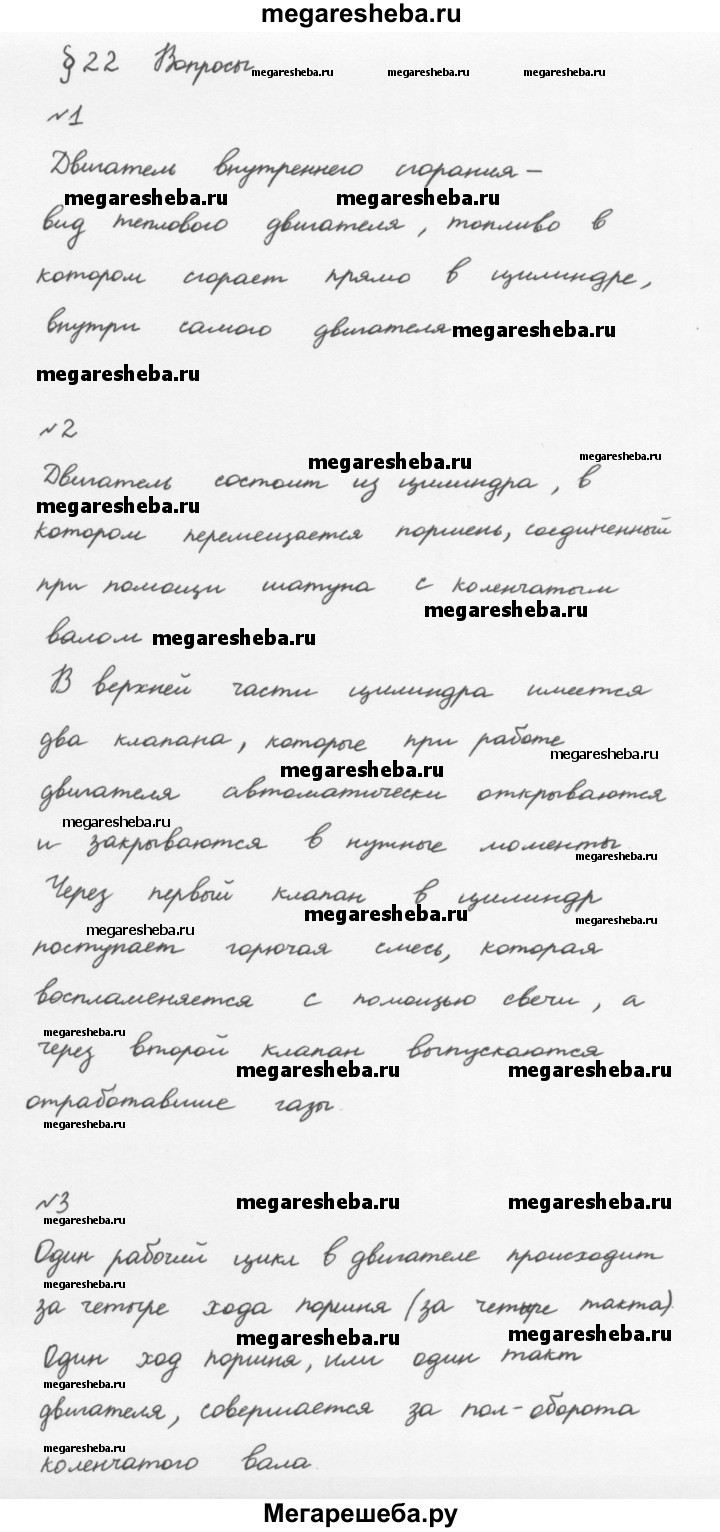 megaresheba.ru
§ 22 Вопросы
megaresheba.ru megaresheba.ru megaresheba.ru
№1
Двигатель внутреннего сгорания –
megaresheba.ru megaresheba.ru
вид теплового двигателя, топливо в
котором сгорает прямо в цилиндре,
внутри самого двигателя
megaresheba.ru
megaresheba.ru
№2
megaresheba.ru megaresheba.ru
Двигатель состоит из цилиндра, в
megaresheba.ru
котором перемещается поршень, соединенный
при помощи шатуна с коленчатым
megaresheba.ru
валом
megaresheba.ru
В верхней части цилиндра имеется
два клапана, которые при работе
megaresheba.ru
megaresheba.ru
двигателя автоматически открываются
megaresheba.ru
и закрываются в нужные моменты
megaresheba.ru
Через первый клапан в цилиндр
megaresheba.ru megaresheba.ru
megaresheba.ru
поступает горючая смесь, которая
воспламеняется с помощью свечи, а
megaresheba.ru
через второй клапан выпускаются
megaresheba.ru megaresheba.ru
отработавшие газы.
megaresheba.ru
№3
megaresheba.ru megaresheba.ru
megaresheba.ru
Один рабочий цикл в двигателе происходит
megaresheba.ru
за четыре хода поршня (за четыре такта).
megaresheba.ru megaresheba.ru
Один ход поршня, или один такт
megaresheba.ru
двигателя, совершается за пол-оборота
megaresheba.ru
коленчатого вала.
Мегарешеба.ру